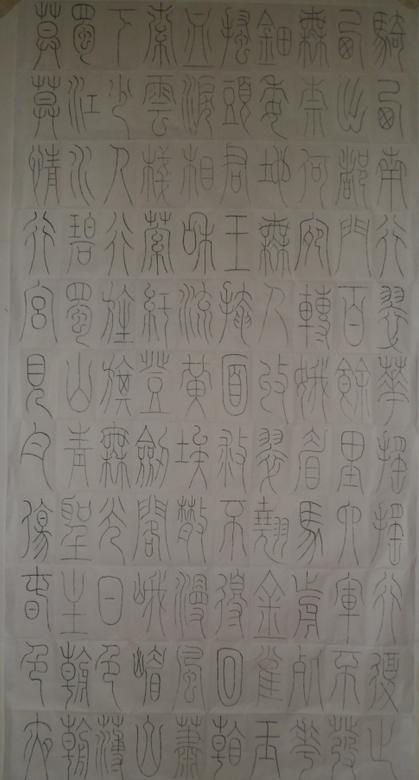 騎西南行翠華搖搖行復止
西出都門百餘里六軍不發
無奈何宛轉娥眉馬前死花
鈿委地無人收翠翹金雀玉
搔頭君王掩面救不得回看
血淚相和流黃埃散漫風蕭
索雲棧縈紆登劍閣峨嵋山
下少人行旌旗無光日色薄
蜀江水碧蜀山青聖主朝朝
莫莫情行宮見月傷心色夜